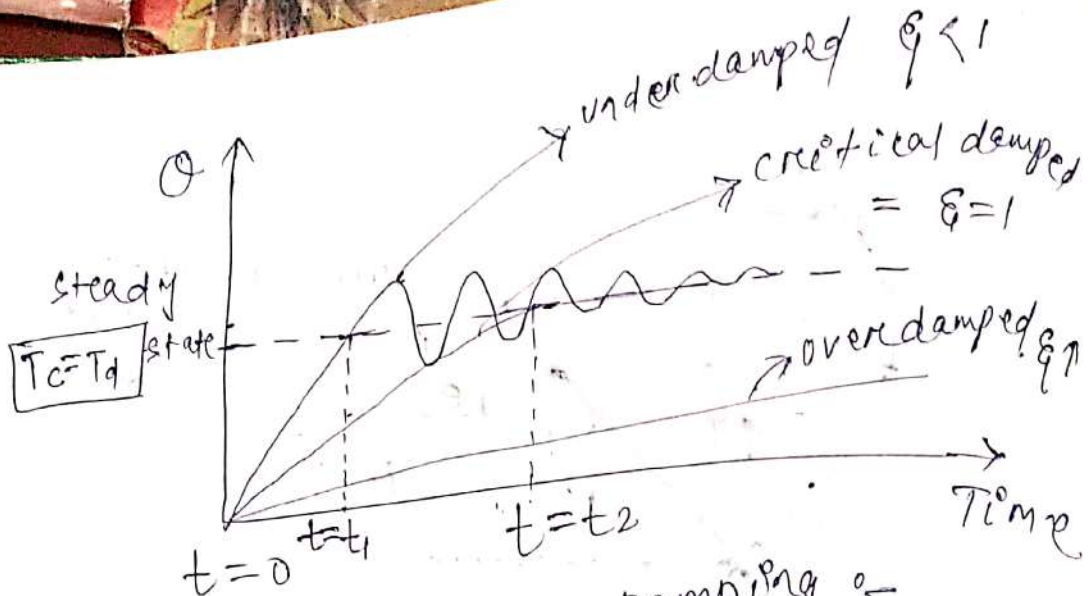 underdamped ξ < 1
critical damped
= ξ = 1
θ
steady
state
Tc = Td
overdamped ξ↑
Time
t = 0
t = t1
t = t2